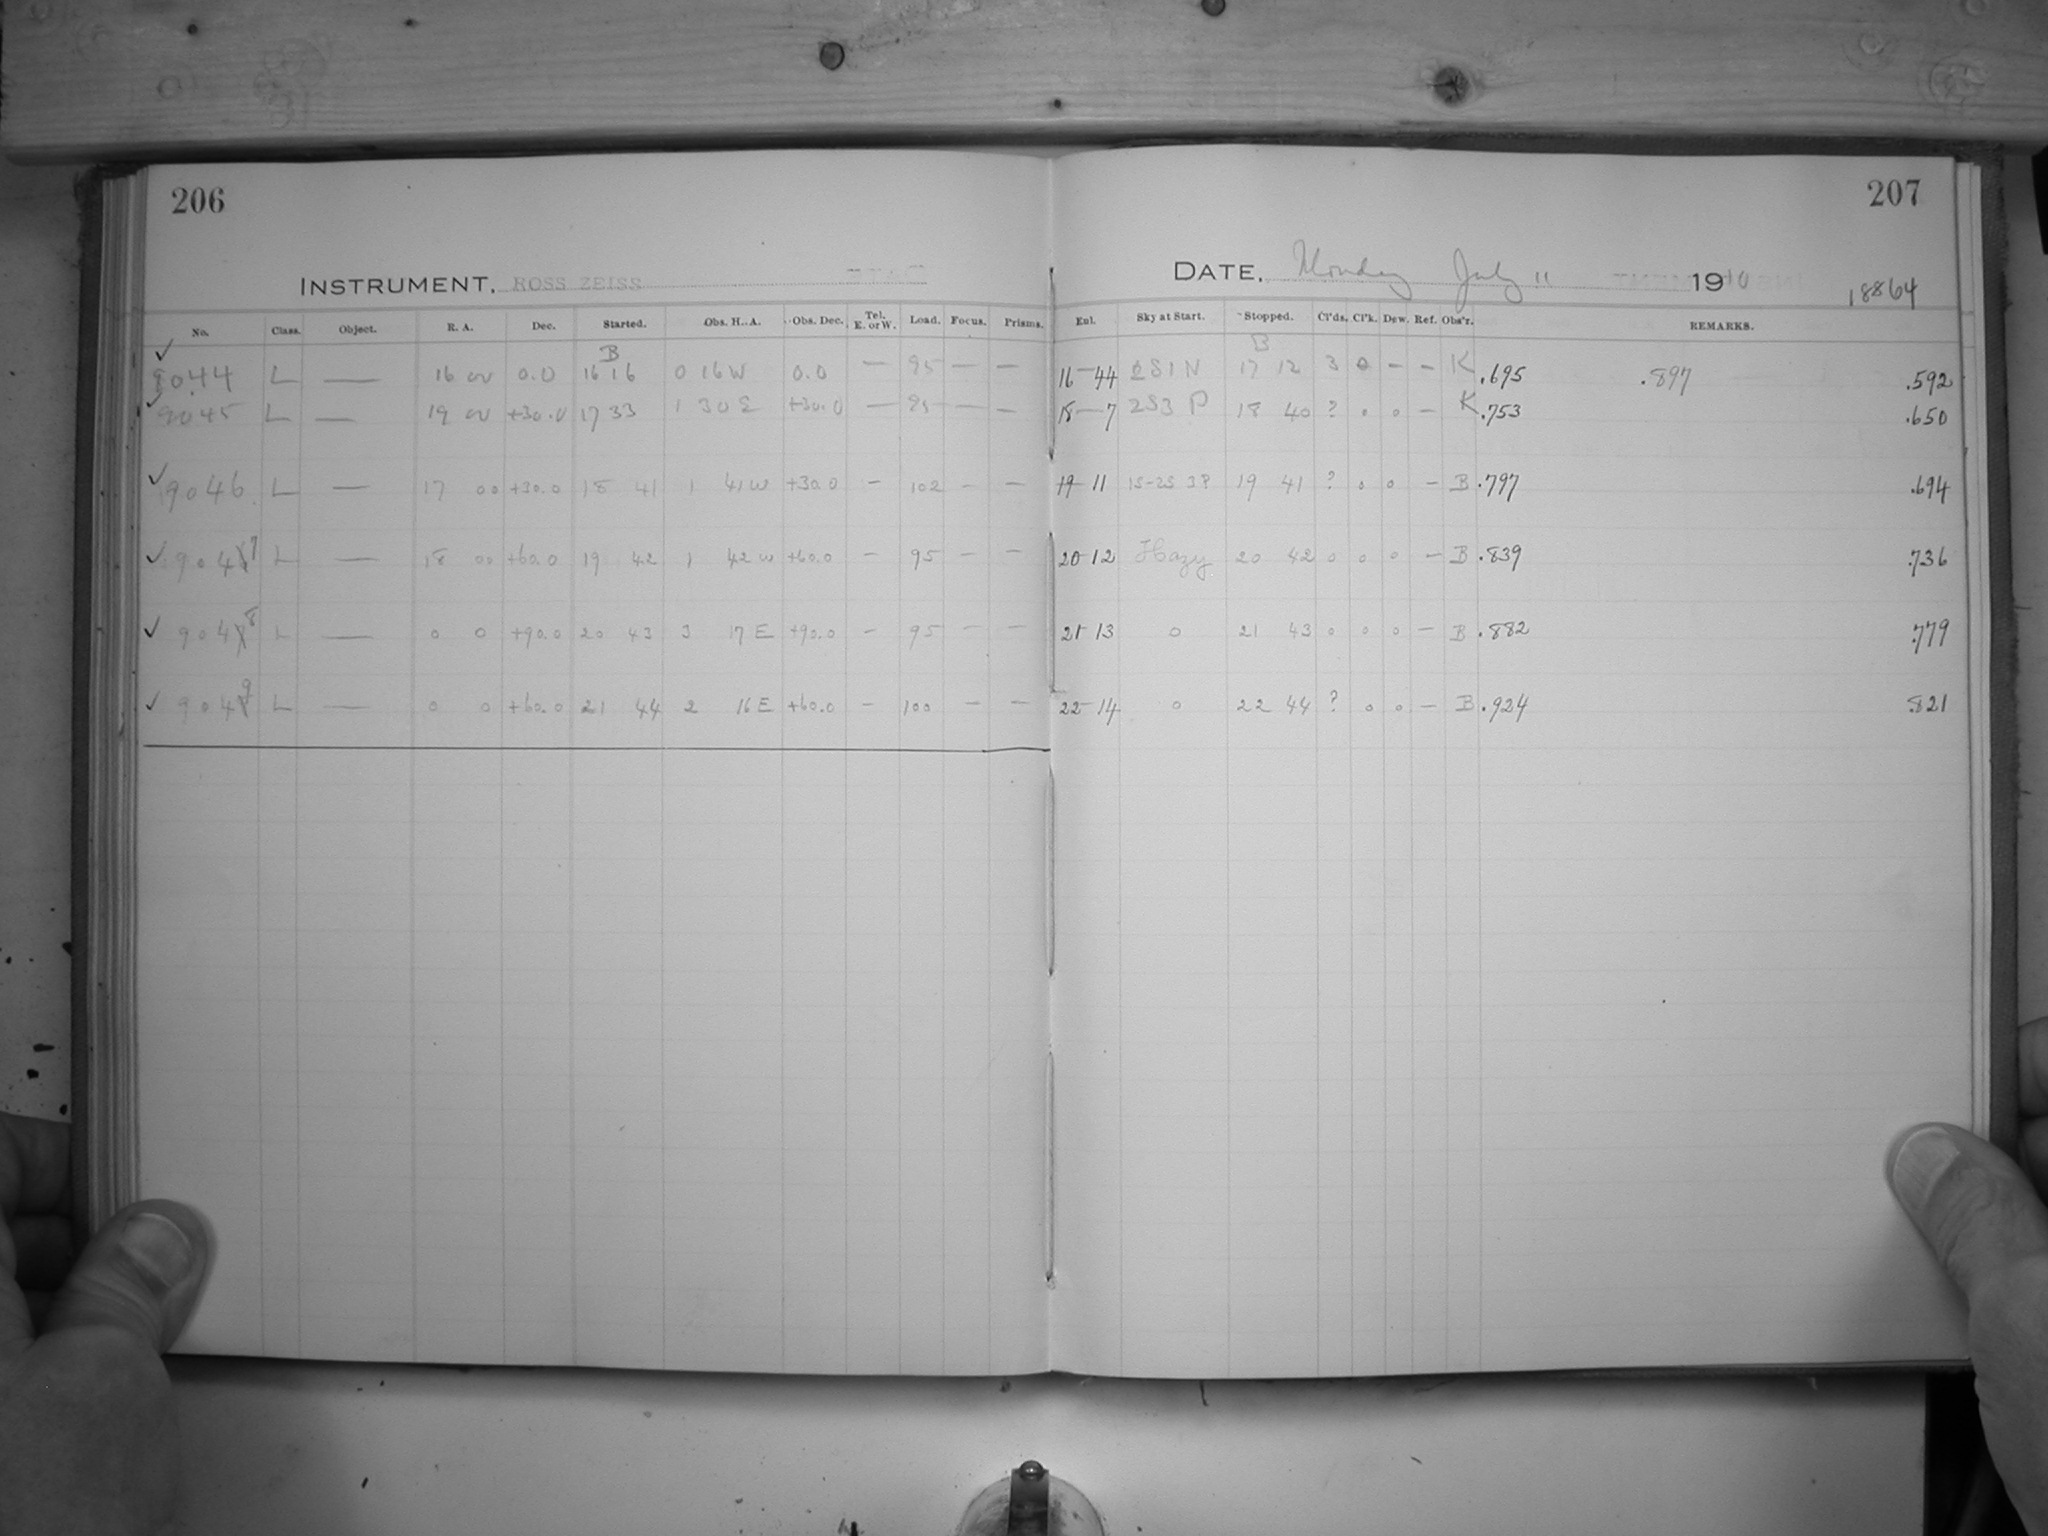 206
207
INSTRUMENT. ROSS ZEISS
DATE. Monday July 11 1910
18864
No. Class. Object. R. A. Dec. Started. Obs. H. A. Obs. Dec. Tel. E. or W. Load. Focus. Prisms. Eul. Sky at Start. Stopped. Cl'ds. Cl'k. Dew. Ref. Obs'r. REMARKS.
B B
✓ 9044 L — 16 00 0.0 16 16 0 16 W 0.0 — 95 — — 16-44 2S1N 17 12 3 0 – – K .695 .897 .592
✓ 9045 L — 19 00 +30.0 17 33 1 30 E +30.0 — 95 — — 18-7 2S3 P 18 40 ? 0 0 – K .753 .650
✓ 9046 L — 17 00 +30.0 18 41 1 41 W +30.0 – 102 – – 19-11 1S-2S 3P 19 41 ? 0 0 – B .797 .694
✓ 9047 L — 18 00 +60.0 19 42 1 42 W +60.0 – 95 – – 20-12 Hazy 20 42 0 0 0 – B .839 .736
✓ 9048 L — 0 0 +90.0 20 43 3 17 E +90.0 – 95 – – 21-13 0 21 43 0 0 0 – B .882 .779
✓ 9049 L — 0 0 +60.0 21 44 2 16 E +60.0 – 100 – – 22-14 0 22 44 ? 0 0 – B .924 .821